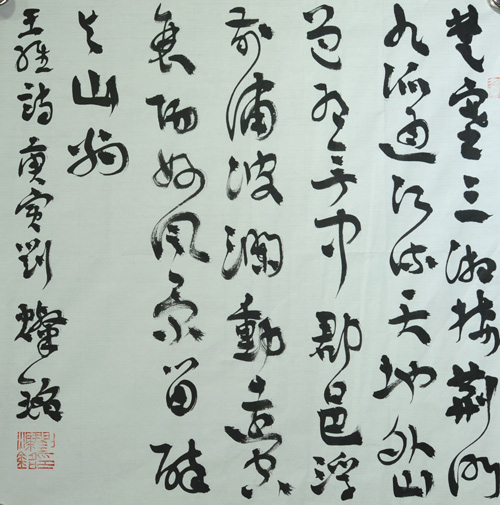 楚塞三湘接荆门
九派通江流天地外山
色有无中郡邑浮
前浦波澜動遠空
襄陽好风景留醉
与山翁
王維詩庚寅劉燦銘